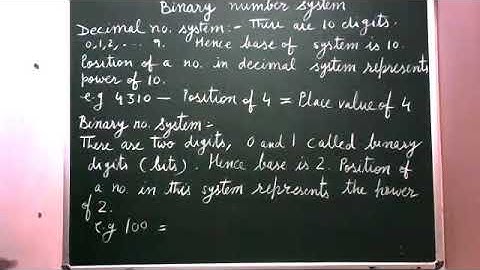 Binary number system
Decimal no. system:- There are 10 digits.
0,1,2, .... 9. Hence base of system is 10.
Position of a no. in decimal system represents
power of 10.
e.g 4310 — Position of 4 = Place value of 4
Binary no. system:-
There are two digits, 0 and 1 called binary
digits (bits). Hence base is 2. Position of
a no. in this system represents the power
of 2.
e.g 100 =